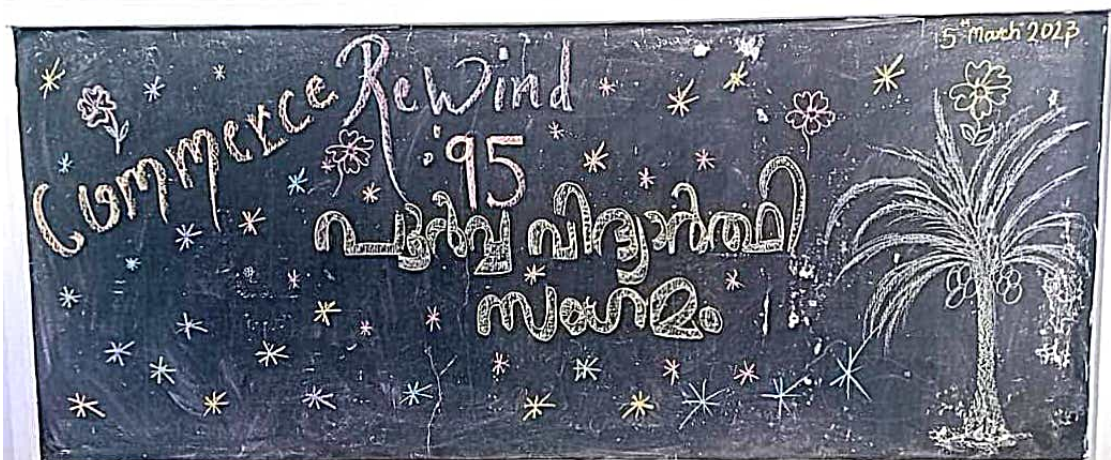 5th March 2023
Commerce Rewind
'95
പൂർവ്വ വിദ്യാർത്ഥി
സംഗമം